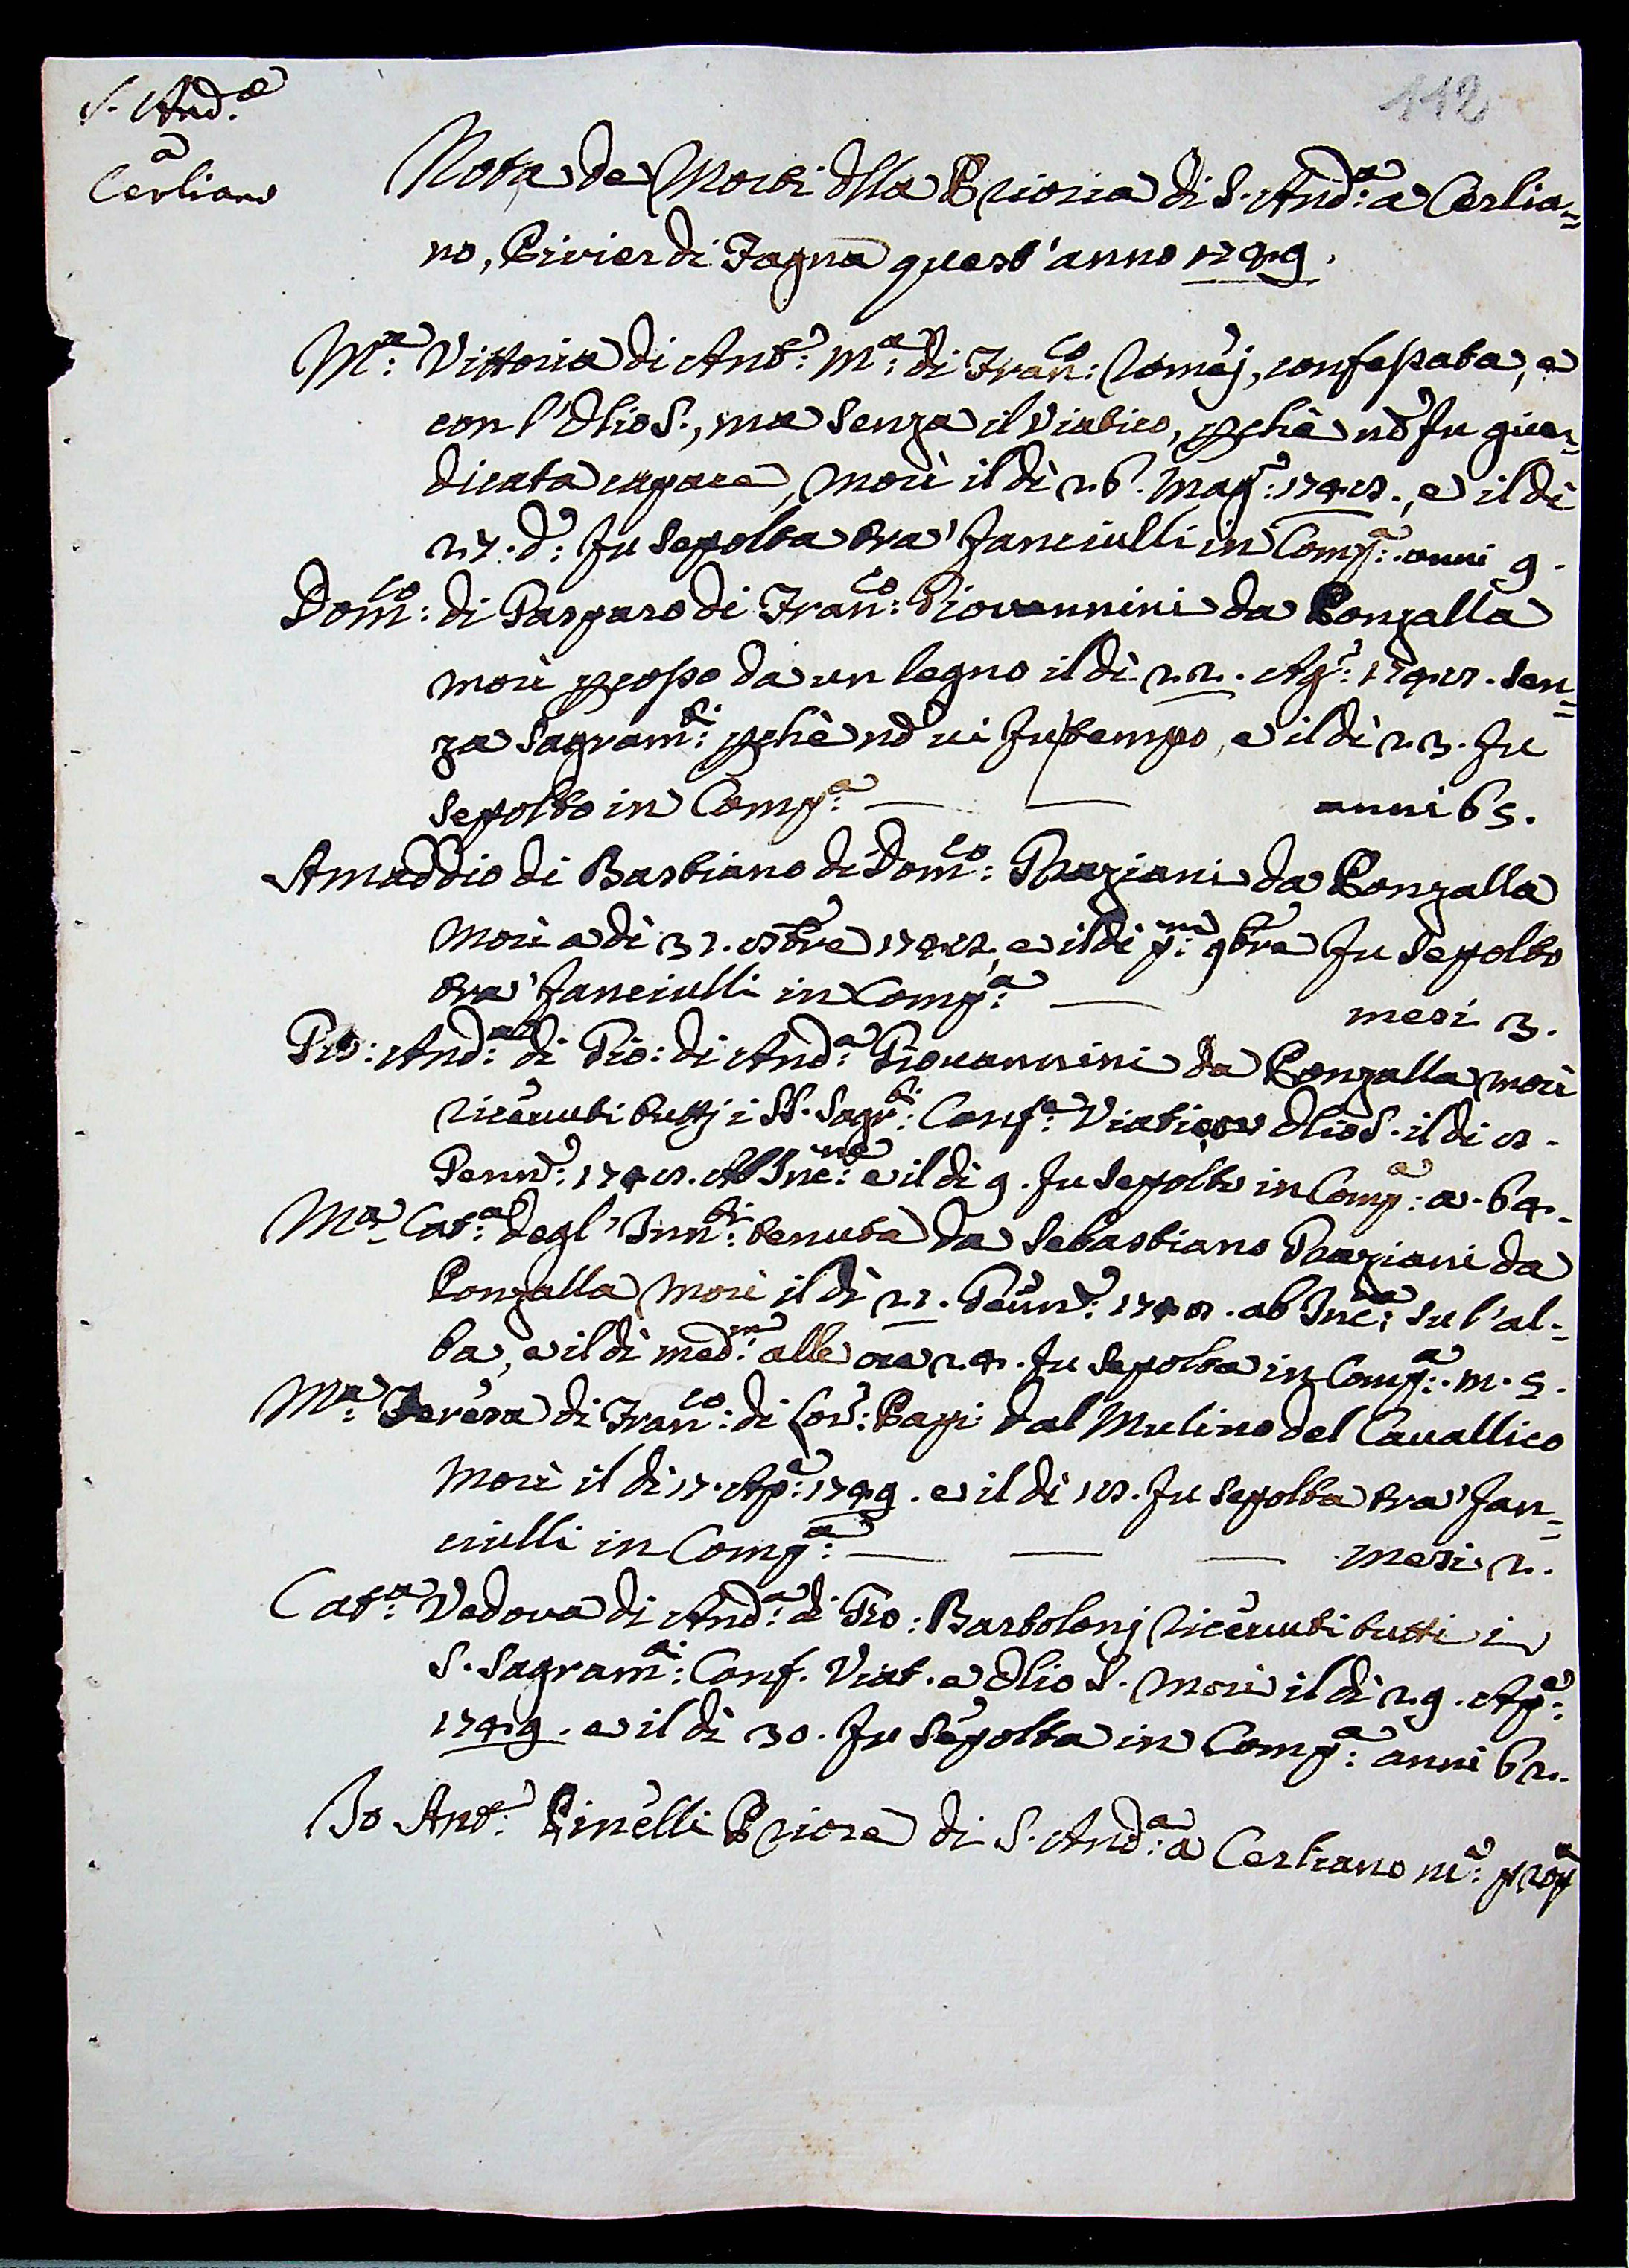 S. And.ª
a
Cerliano
112
Nota de Morti dlla Prioria di S. And:ª a Cerlia=
no, Pivier di Fagna quest'anno 1749.
M:ª Vittoria di Ant:º M:ª di Fran:co Romej, confessata, e
con l'Olio S., ma senza il Viatico, pchè nõ fu giu=
dicata capace, morì il dì 26. Mag:º 1748., e il dì
27. d:º fu sepolta tra' fanciulli in Comp:ª anni 9.
Dom:co di Gasparo di Fran:co Giovannini da Ronzalla
morì pcosso da un legno il dì 22. Ag:º 1748. sen=
za Sagram:ti pchè nõ ui fu tempo, e il dì 23. fu
sepolto in Comp:ª — — anni 65.
Amaddio di Bastiano di Dom:co Graziani da Ronzalla
morì a dì 31. 8bre 1748., e il dì p:mo 9bre fu sepolto
tra' fanciulli in Comp:ª — mesi 3.
Gio: And:ª di Gio: di And:ª Giouannini da Ronzalla morì
riceuuti tuttj i SS. Sagr:ti Conf:e Viatico e Olio S. il dì 8.
Genn:º 1748. Ab Inc:ne e il dì 9. fu sepolto in Comp:ª a. 64.
M:ª Cat:ª degl'Inn:ti tenuta da Sebastiano Graziani da
Ronzalla morì il dì 21. Genn:º 1748. ab Inc:ne su l'al=
ba, e il dì med:mo alle ore 24. fu sepolta in Comp:ª m. 5.
M:ª Teresa di Fran:co di Lor:º Papi dal Mulino del Cauallico
morì il dì 17. Ap:e 1749. e il dì 18. fu sepolta tra' fan=
ciulli in Comp:ª — — — mesi 2.
Cat:ª Vedoua di And:ª di Gio: Bartolonj riceuuti tutti i
S. Sagram:ti Conf. Viat. e Olio S. morì il dì 29. Ap:e
1749. e il dì 30. fu sepolta in Comp:ª anni 62.
Io Ant:º Pinelli Priore di S. And:ª a Cerliano m:º prop:ª